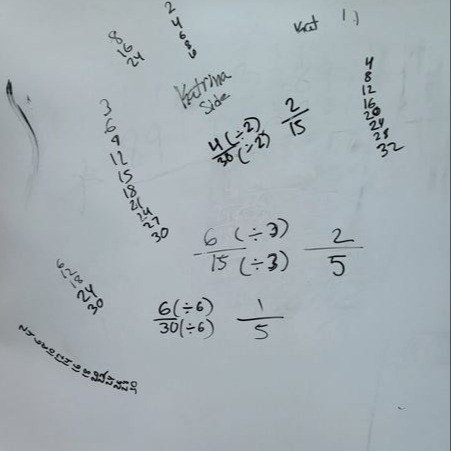 2
4
6
8
6
8
16
24
Kat 1.)
Katrina
Side
4
8
12
16
20
24
28
32
3
6
9
12
15
18
21
24
27
30
4 (÷2) 2
30 (÷2) 15
6 (÷3) 2
15 (÷3) 5
6
12
18
24
30
6 (÷6) 1
30 (÷6) 5